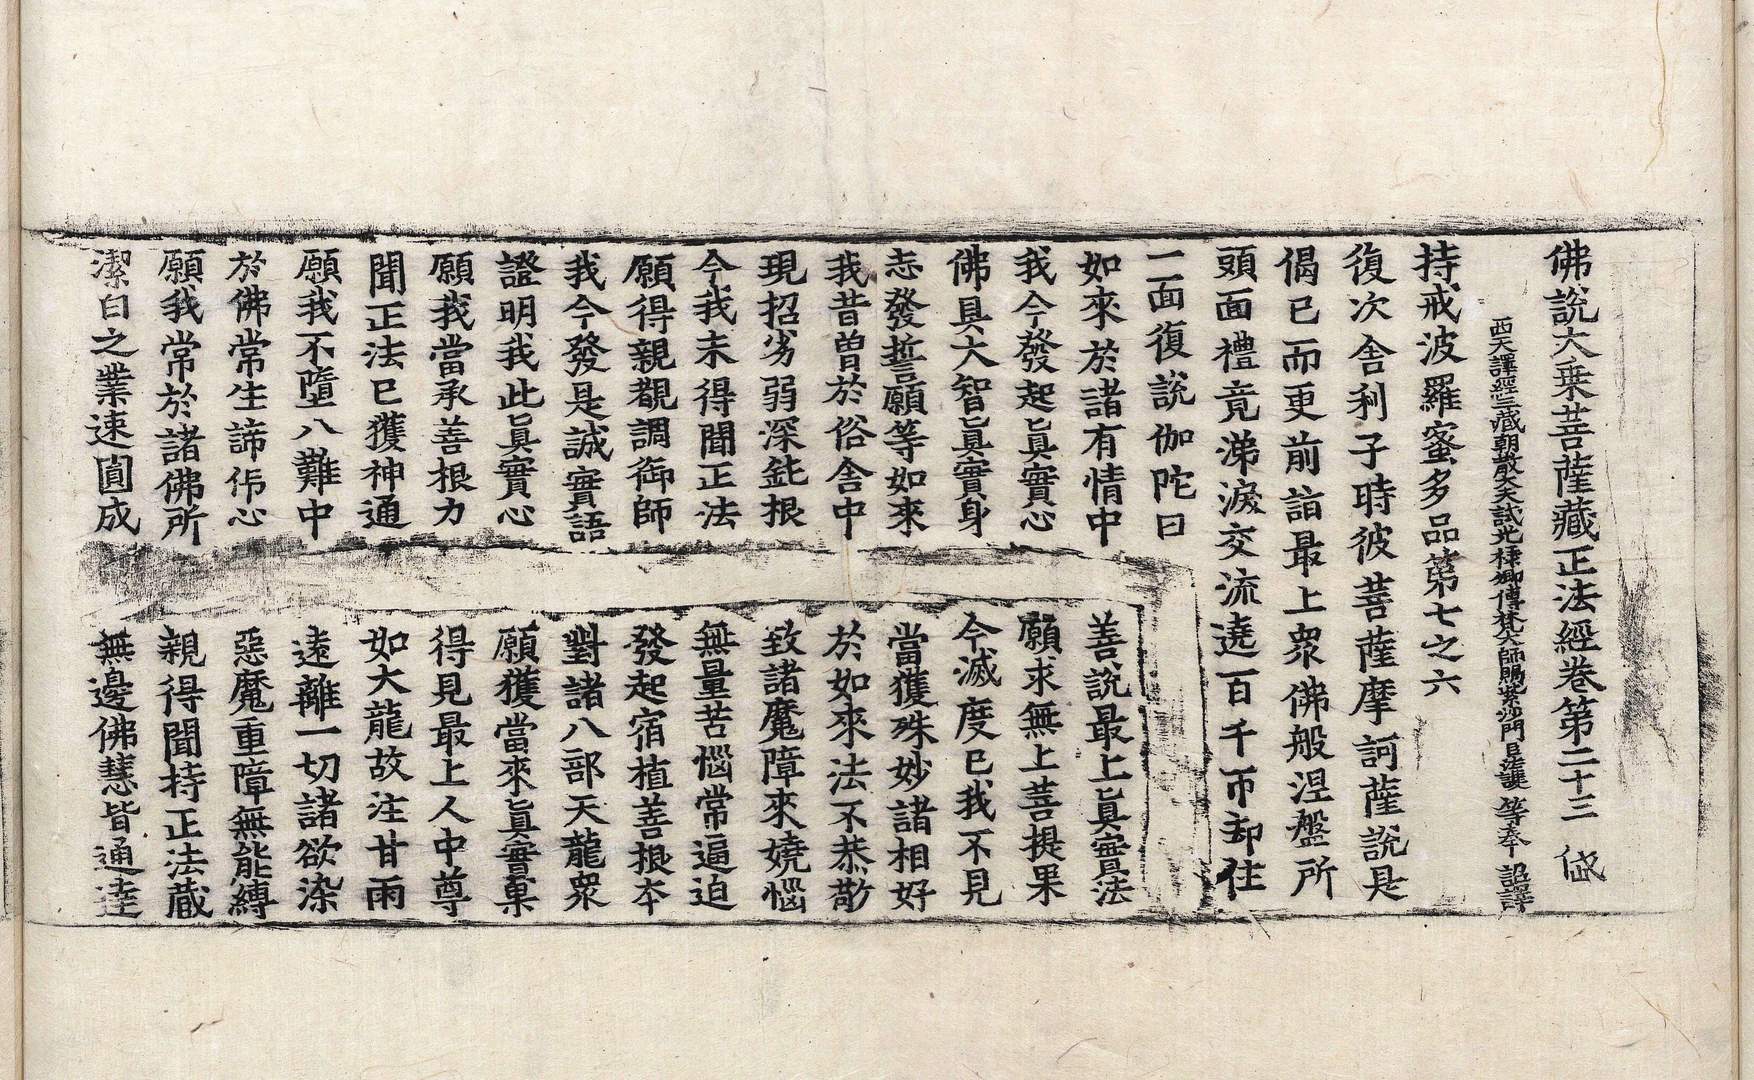 佛說大乗菩薩藏正法經卷第二十三 岱
西天譯經三藏朝散大夫試光祿卿傳梵大師賜紫沙門臣法護 等奉 詔譯
持戒波羅蜜多品第七之六
復次舍利子時彼菩薩摩訶薩說是
偈已而更前詣最上衆佛般涅盤所
頭面禮竟涕淚交流遶百千帀却住
一面復說伽陀曰
如來於諸有情中 善說最上眞實法
我今發起眞實心 願求無上菩提果
佛具大智眞實身 今滅度已我不見
志發誓願等如來 當獲殊妙諸相好
我昔曽於俗舍中 於如來法不恭敬
現招劣弱深鈍根 致諸魔障來嬈惱
今我未得聞正法 無量苦惱常逼迫
願得親覩調御師 發起宿植善根本
我今發是誠實語 對諸八部天龍衆
證明我此眞實心 願獲當來眞實菓
願我當承善根力 得見最上人中尊
聞正法已獲神通 如大龍故注甘雨
願我不墮八難中 遠離一切諸欲染
於佛常生諦信心 惡魔重障無能縛
願我常於諸佛所 親得聞持正法藏
潔白之業速圓成 無邊佛慧皆通達